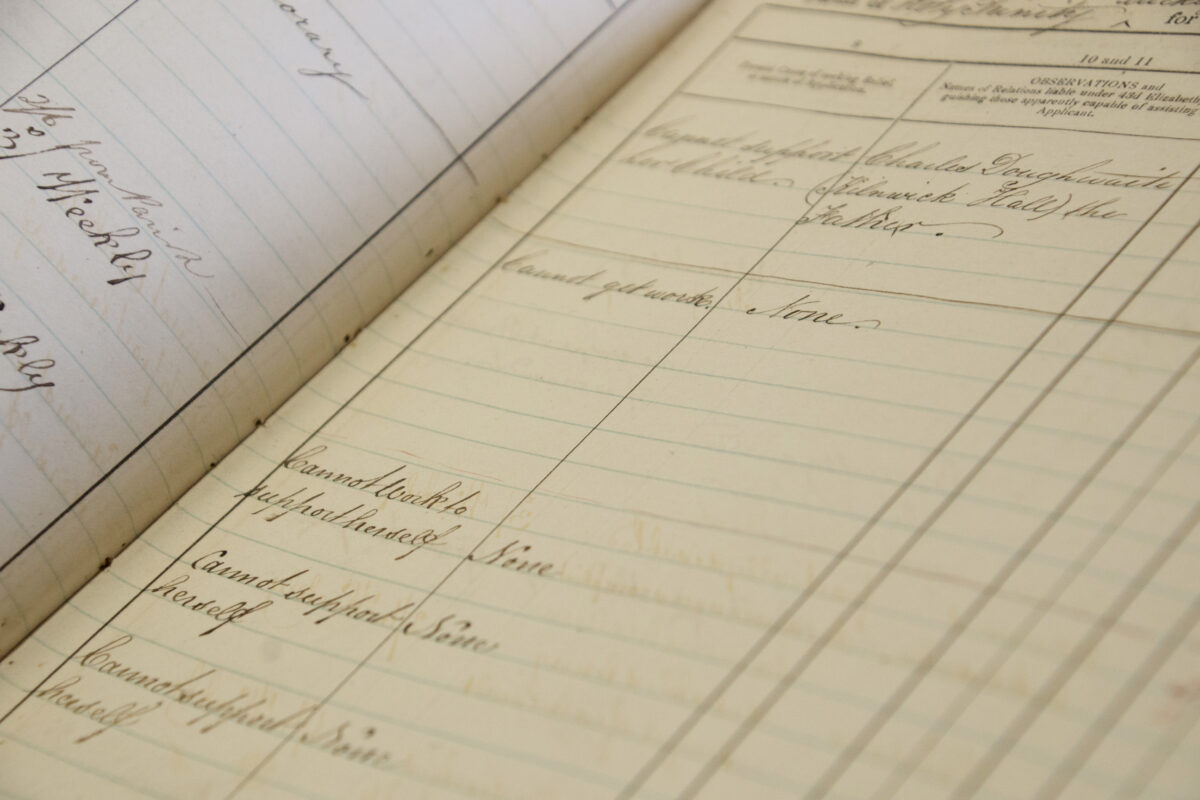 orary
2/6 from Parish
3/ Weekly
kly
Holy Trinity
for
10 and 11
Present Cause of seeking Relief
OBSERVATIONS and
Names of Relations liable under 43d Elizabeth
guishing those apparently capable of assisting
Applicant.
support
her Child.
Charles Doughwaite
Hall) the
Father.
Cannot get work.
None.
Cannot Work to
support herself
None
Cannot support
herself
None
Cannot support
herself
None